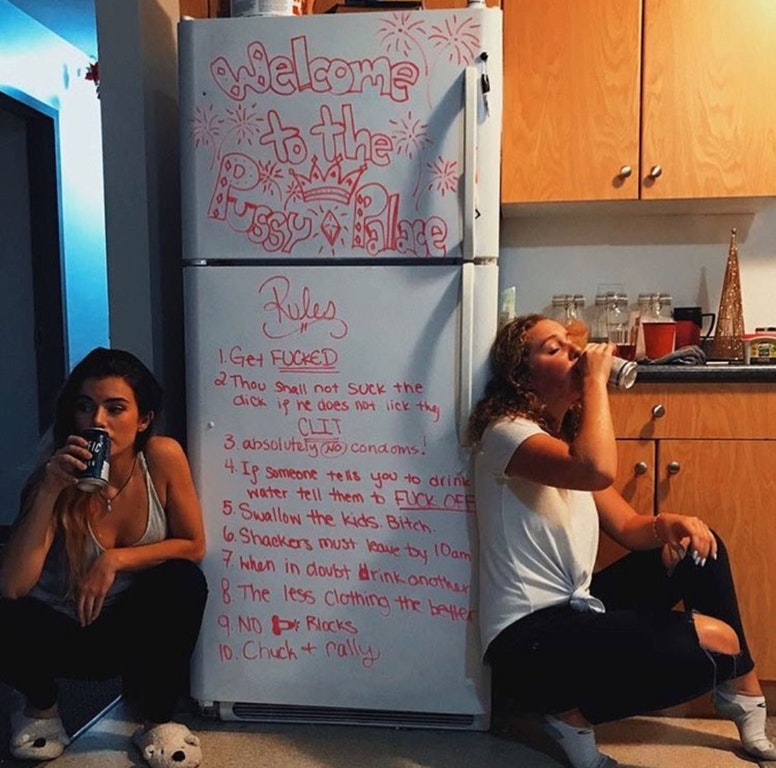 Welcome
to the
Pussy Palace
Rules
1. Get FUCKED
2 Thou shall not suck the
dick if he does not lick thy
CLIT
3. absolutely NO condoms!
4. If someone tells you to drink
water tell them to FUCK OFF
5. Swallow the kids. Bitch.
6. Shackers must leave by 10am
7. when in doubt drink another
8. The less clothing the better
9. NO Blocks
10. Chuck + rally